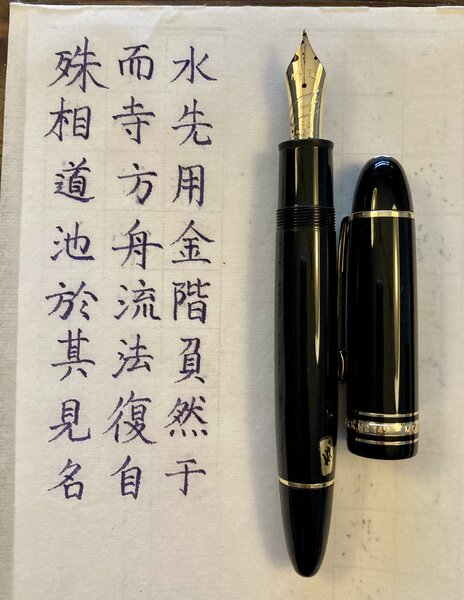 水先用金階負然于
而寺方舟流法復自
殊相道池於其見名
No 149